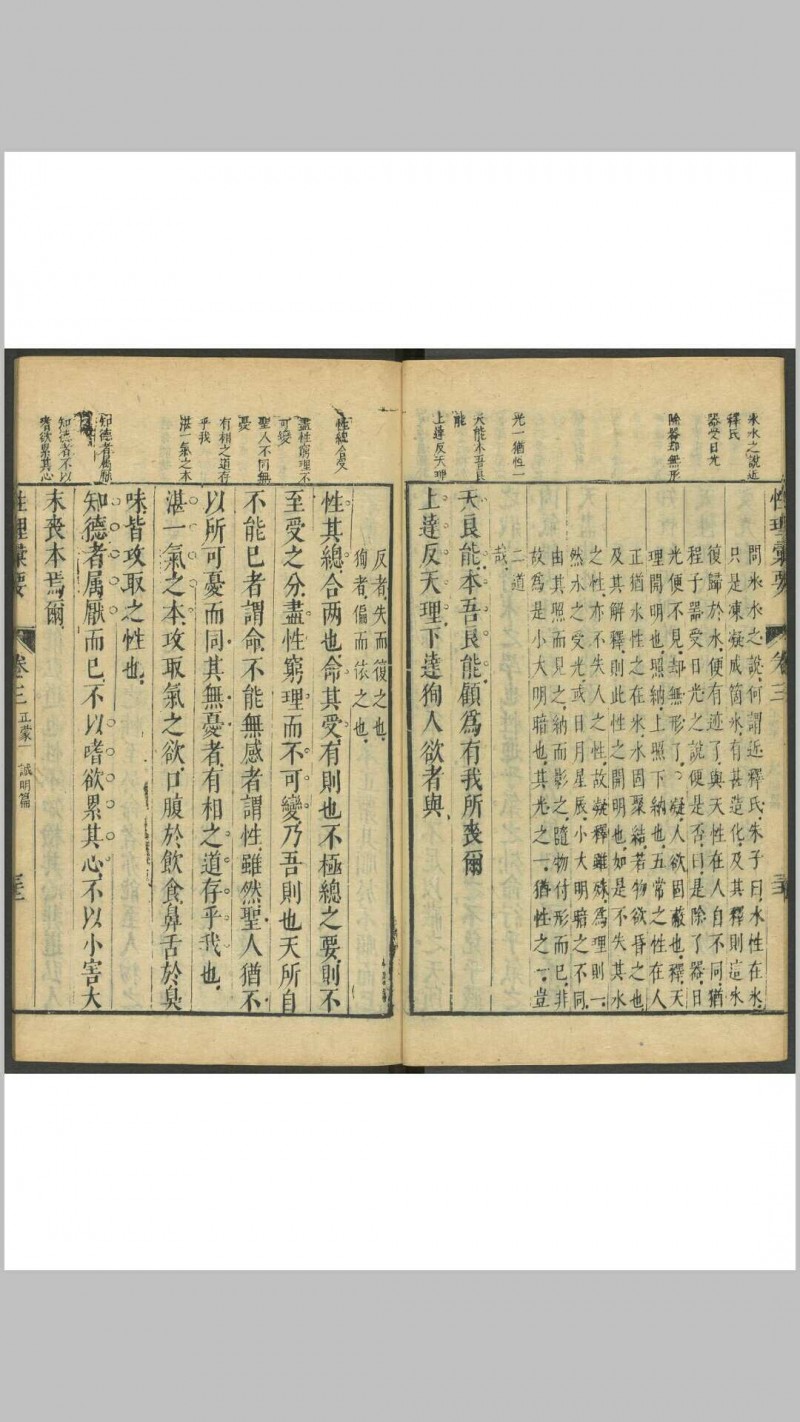 氷水之說近
釋氏
器受日光
除器却無形
光一猶性一
天能本吾良
能
上達反天理
性理彙要
卷三
問氷水之說何謂近釋氏朱子曰水性在氷
只是凍凝成箇氷有甚造化及其釋則這氷
復歸於水便有迹了與天性在人自不同猶
程子器受日光之說便是否曰是除了器日
光便不見却無形了○凝人欲固蔽也釋天
理開明也照納上照下納也五常之性在人
正猶水性之在氷水固聚結若物欲昏之也
及其解釋則此性之開明也如是不失其水
之性亦不失人之性故凝釋雖殊為理則一
然水之受光或日月星辰小大明暗之不同
由其照而見之納而影之隨物付形而已非
故為是小大明暗也其光之一猶性之一豈
二道
哉
天良能本吾良能顧為有我所喪爾
上達反天理下達狥人欲者與
性總合受
盡性窮理不
可變
聖人不同無
憂
有相之道存
乎我
湛一氣之本
知德者屬厭
知德者不以
嗜欲累其心
反者失而復之也
狥者偏而依之也
性其總合两也命其受有則也不極總之要則不
至受之分盡性窮理而不可變乃吾則也天所自
不能已者謂命不能無感者謂性雖然聖人猶不
以所可憂而同其無憂者有相之道存乎我也
湛一氣之本攻取氣之欲口腹於飲食鼻舌於臭
味皆攻取之性也
知德者属厭而已不以嗜欲累其心不以小害大
末喪本焉爾
性理彙要
卷三 正蒙一 誠明篇